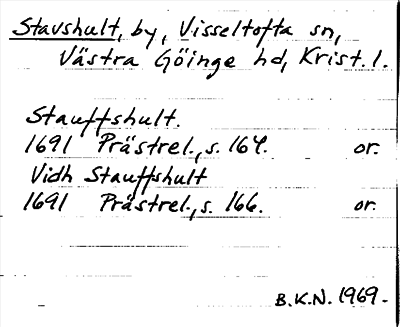 Stavshult, by, Visseltofta sn,
Västra Göinge hd, Krist. l.
Stauffshult.
1691 Prästrel., s. 164. or.
Vidh Stauffshult
1691 Prästrel., s. 166. or.
B.K.N. 1969.